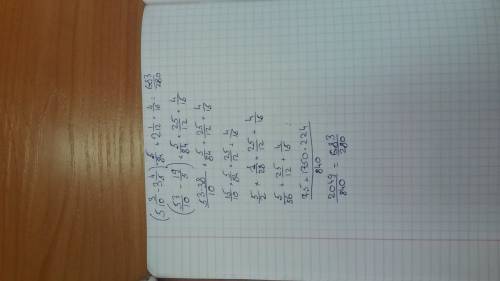 (5 3/10 - 3 4/5) · 5/84 + 2 1/12 + 4/15 = 683/280
(53/10 - 19/5) · 5/84 + 25/12 + 4/15
53-38/10 · 5/84 + 25/12 + 4/15
15/10 · 5/84 + 25/12 + 4/15
5/2 · 1/28 + 25/12 + 4/15
5/56 + 25/12 + 4/15
75 + 1750 + 224/840
2049/840 = 683/280